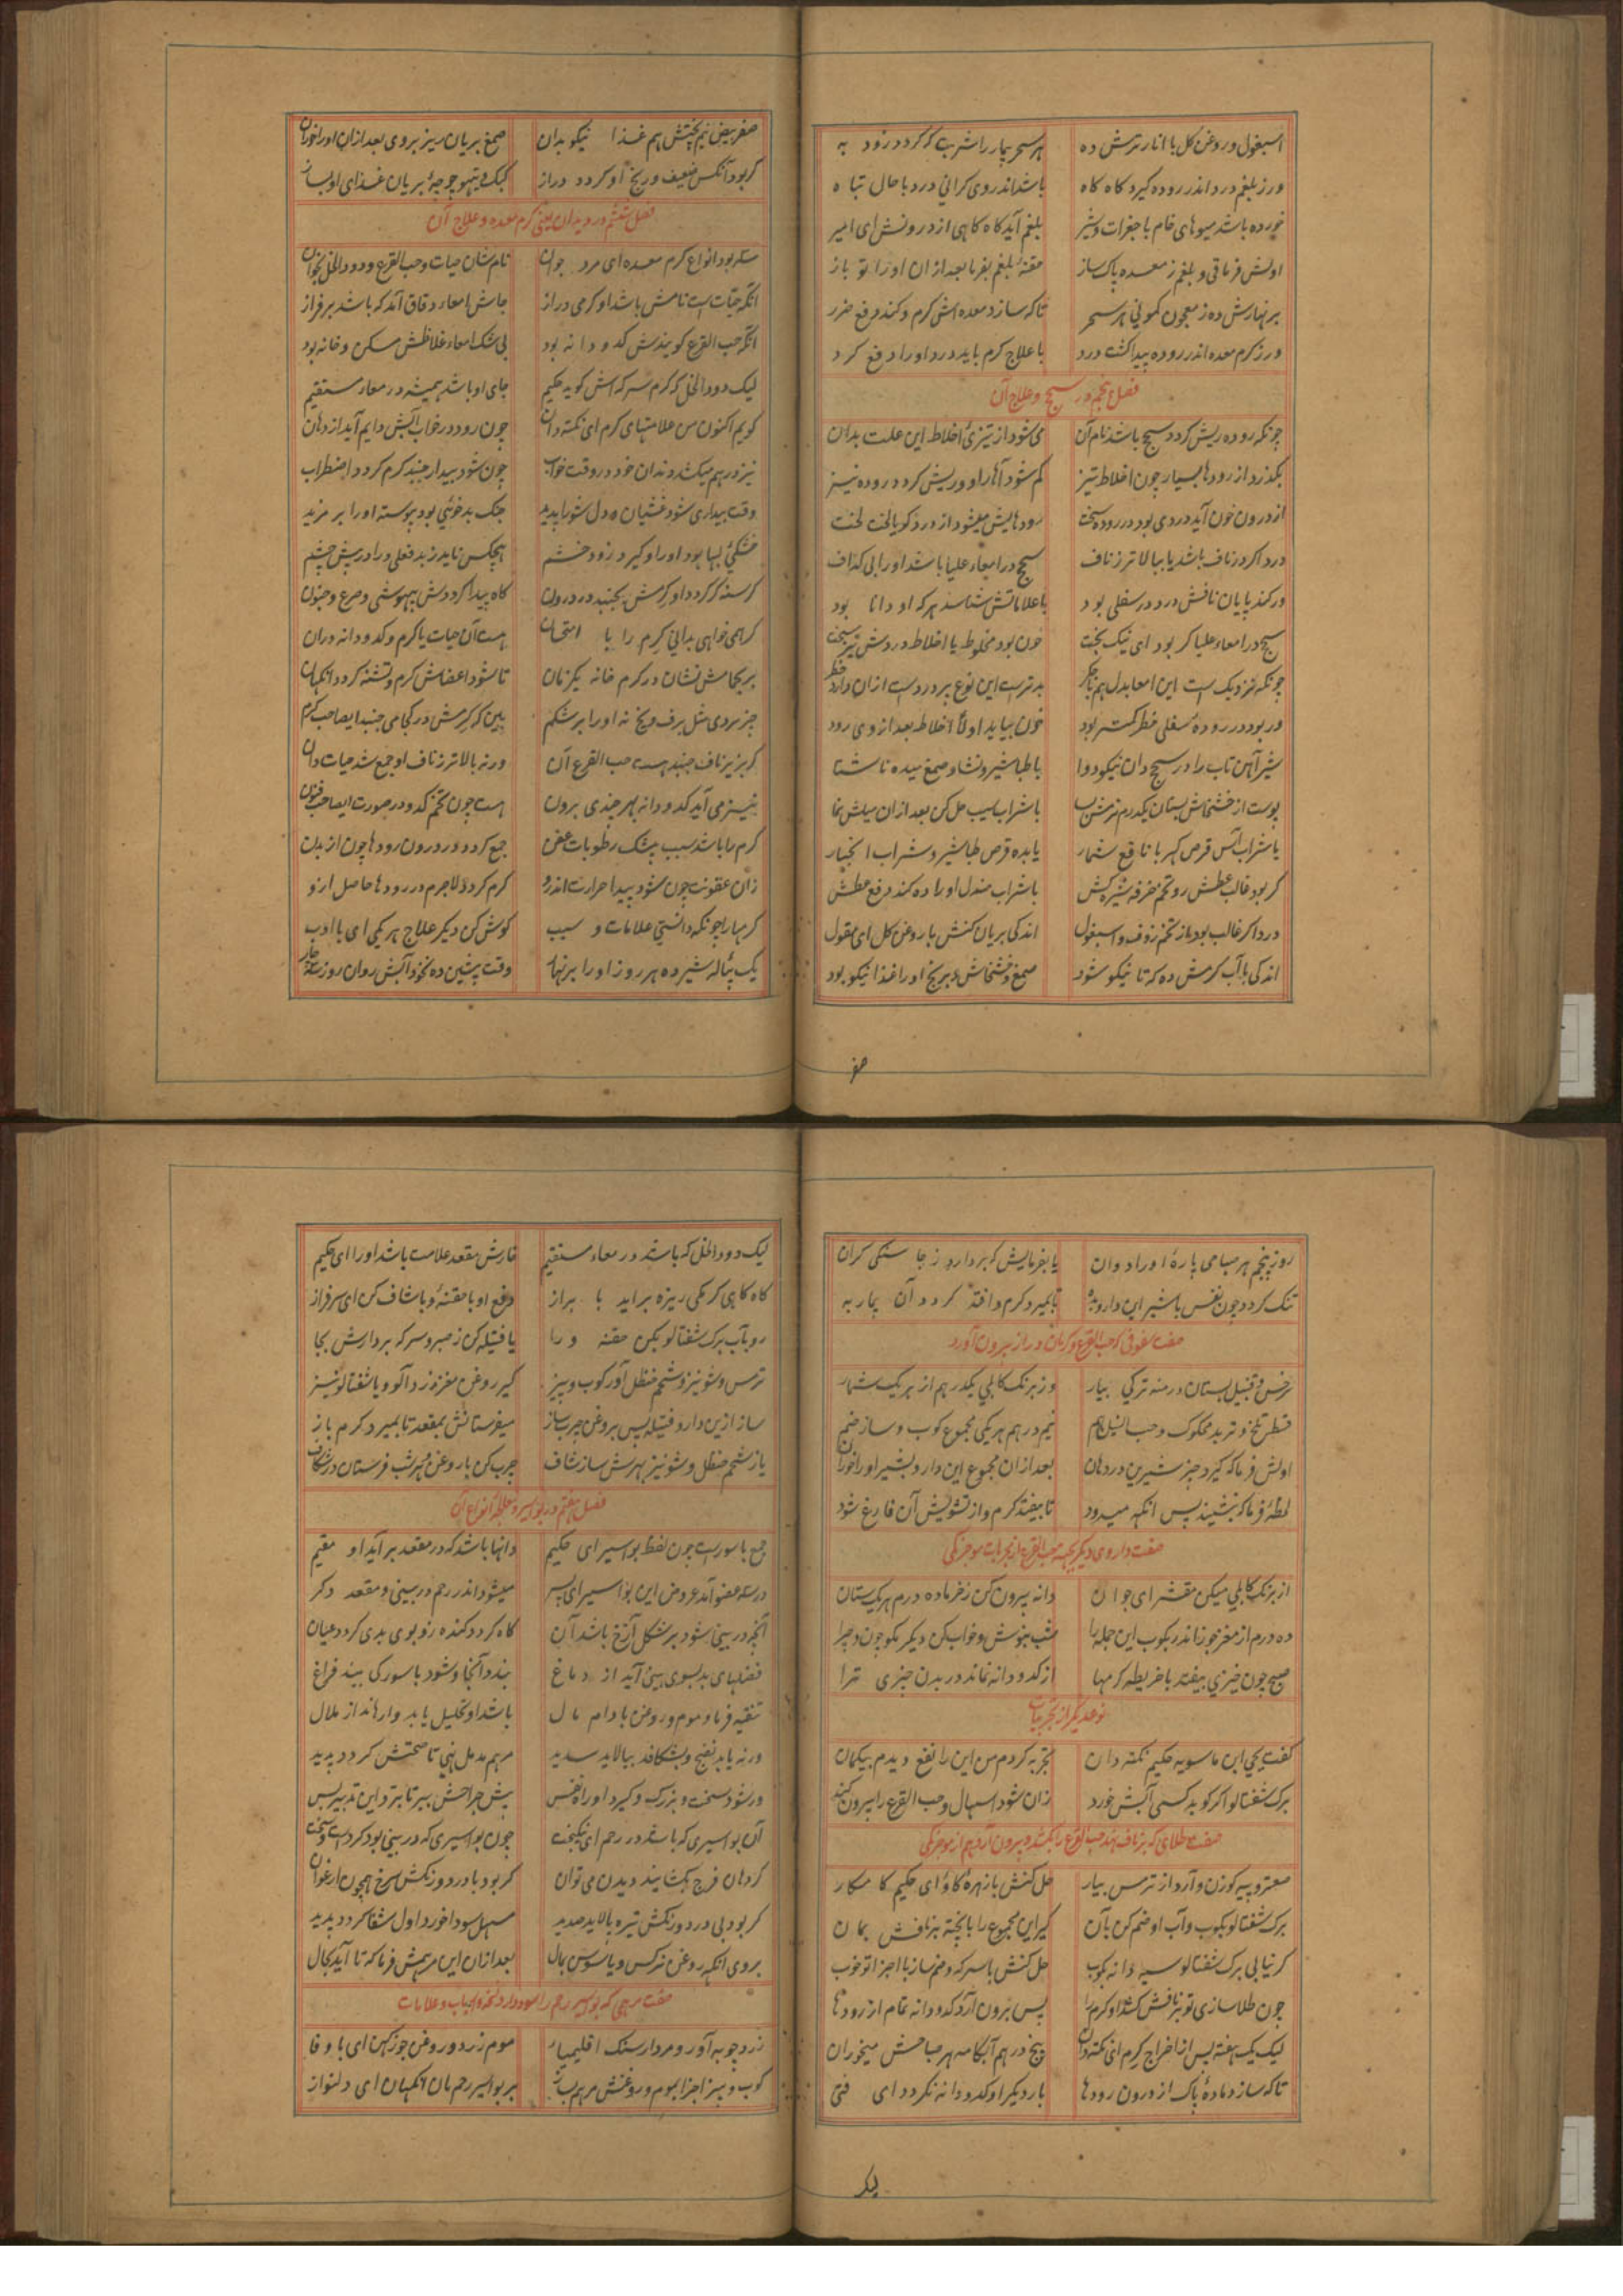 اسبغول و روغن کل با انار ترش ده هر سحر بیمار را شربت که کردد زود به
ورز بلغم درد اندر روده کیرد کاه کاه باشد اندر وی کرانی درد با حال تباه
خورده باشد میوهای خام با جغرات و شیر بلغم آید کاه کاهی از درونش ای امیر
اولش فرما قی و بلغم ز معده پاک ساز حقنهٔ بلغم بفرما بعد از ان او را تو باز
بر نهارش ده ز معجون کمونی هر سحر تا که سازد معده اش کرم و کند دفع ضرر
ورز کرم معده اندر روده پیدا کشت درد با علاج کرم باید درد او را دفع کرد
فصل پنجم در سحج و علاج آن
چونکه روده ریش کردد سحج باشد نام آن می شود از تیزیٔ اخلاط این علت بدان
بکذرد از رودها بسیار چون اخلاط تیز کم شود آهار او و ریش کردد روده نیز
از درون خون آید و دردی بود در روده سخت رودهایش میشود از درد کویا لخت لخت
درد اکر در ناف باشد یا ببالاتر ز ناف سحج در امعاء علیا باشد او را بی کذاف
ور کند پایان نافش درد در سفلی بود با علاماتش شناسد هر که او دانا بود
سحج در امعاء علیا کر بود ای نیک بخت خون بود مخلوط با اخلاط و دردش نیز سخت
چونکه نزدیک است این امعا بدل هم با جکر بدترست این نوع بر دردست ازان دارد خطر
ور بود در رودهٔ سفلی خطر کمتر بود خون بیاید اولاً اخلاط بعد از وی رود
شیر آهن تاب را در سحج دان نیکو دوا با طباشیر و نشا و صمغ میده ناشتا
پوست از خشخاش بستان یکدرم نرمش بساب با شراب سیب حل کن بعد از ان میلش نما
با شراب آس قرص کهربا نافع شمار یا بده قرص طباشیر و شراب انجبار
کر بود غالب عطش رو تخم خرفه شیره کش با شراب صندل او را ده کند دفع عطش
درد اکر غالب بود باز تخم زوف و اسبغول اندکی بریان کنش با روغن کل ای عقول
اندکی با آب کرمش ده که تا نیکو شود صمغ و خشخاش و برنج او را غذا نیکو بود
صفر
صفر بیض نیم پختش هم غذا نیکو بدان صمغ بریان ریز بر وی بعد ازان او را خوران
کر بود آنکس ضعیف و رنج او کردد دراز کبک و تیهو جوجهٔ بریان غذای او بساز
فصل ششم در دیدان یعنی کرم معده و علاج آن
سه بود انواع کرم معده ای مرد جوان نام شان حیات و حب القرع و دود الخل بخوان
آنکه حیاتست نامش باشد او کرمی دراز جاش امعاء دقاق آمد که باشد بر فراز
آنکه حب القرع کویندش کدو دانه بود بی شک امعاء غلاظش مسکن و خانه بود
لیک دود الخل که کرم سرکه اش کوید حکیم جای او باشد همیشه در معاء مستقیم
کویم اکنون من علامتهای کرم ای نکته دان چون رود در خواب آبش دایم آید از دهان
نیز در هم میکشد دندان خود در وقت خواب چون شود بیدار جنبد کرم کردد اضطراب
وقت بیداری شود غثیان و دل شوراید جنک بد خوئی بود پیوسته او را بر مزید
خشکیٔ لبها بود او را و کیرد زود خشم هیچکس ناید ز بد فعلی ورا در پیش چشم
کرسنه کر کردد او کرمش بجنبد در درون کاه پیدا کرددش بیهوشی و صرع و جنون
کر همی خواهی بدانی کرم را با امتحان هست آن حیات یا کرم و کدو دانه دران
بر کجا مش نشان در کرم خانه یکزمان تا شود اعضاش کرم و تشنه کردد انکهان
چیز بردی مثل برف و یخ نه او را بر شکم ببین که کرمش در کجا می جنبد ایصاحب کرم
کر بزیر ناف جنبد هست حب القرع آن ورنه بالاتر ز ناف او جمع شد حیات دان
نیز می آید کدو دانه بهر چندی برون هست چون تخم کدو در صورت ایصاحب فنون
کرم را باشد سبب بیشک رطوبات عفن جمع کردد در درون رودها چون از بدن
زان عفونت چون شود پیدا حرارت اندرو کرم کردد لاجرم در رودها حاصل ازو
کرمها را چونکه دانستی علامات و سبب کوش کن دیکر علاج هر یکی ای با ادب
یک پیاله شیر ده هر روز او را بر نهار وقت پیشین ده نخود آبش روان روز سه چار
روز پنجم هر صباحی پارهٔ او را دوان یا بفرمایش که بردارد ز جا سنکی کران
تنک کردد چون نفس با شیر این دارو بده تا بمیرد کرم و افتد کردد آن بیمار به
صفت سفوفی که حب القرع و کرمهای دراز بیرون آورد
سرخس و قنبیل بستان درمنه ترکی بیار وز برنک کابلی یکدرهم از هر یک شمار
قسط تلخ و تربد محکوک و حب النیل هم نیم درهم هر یکی مجموع کوب و ساز ضم
اولش فرما که کیرد چیز شیرین در دهان بعد ازان مجموع این دارو بشیر او را خوران
لحظهٔ فرما که بنشیند پس انکه میدود تا بیفتد کرم و از تشویش آن فارغ شود
صفت داروی دیکر بجهت حب القرع از مجربات موجزکی
از برنک کابلی میکن مقشر ای جوان دانه بیرون کن ز خرما ده درم هر یک ستان
ده درم از مغز جوز اندر بکوب این جمله را شب بنوش و خواب کن دیکر مکو چون و چرا
صبح چون خیزی بیفتد با خریطه کرمها از کدو دانه نماند در بدن چیزی ترا
نوعدیکر از مجربات
کفت یحیی ابن ماسویه حکیم نکته دان تجربه کردم من این را نفع دیدم بیکمان
برک شفتالو اکر کوبد کسی آبش خورد زان شود اسهال و حب القرع را بیرون کند
صفت طلای که بر ناف نهند حب القرع را بکشد و بیرون آرد هم از موجزکی
صعتر و پیه کوزن و آرد از ترمس بیار حل کنش با زهرهٔ کاو ای حکیم کامکار
برک شفتالو بکوب و آب او ضم کن بآن کیر این مجموع را با پخته بر نافش بمان
کر نیابی برک شفتالو سیه دانه بکوب حل کنش با سرکه و ضم ساز با اجزا تو خوب
چون طلا سازی تو بر نافش کشد او کرم را پس برون آرد کدو دانه تمام از رودها
لیک یک هفته پس از اخراج کرم ای نکته دان پنج درهم آبکامه هر صباحش میخوران
تا که سازد مادهٔ پاک از درون رودها بار دیکر او کدو دانه نکردد ای فتی
لیک
لیک دود الخل که باشد در معاء مستقیم خارش مقعد علامت باشد او را ای حکیم
کاه کاهی کرمکی ریزه براید با براز دفع او با حقنهٔ و با شاف کن ای سرفراز
رو بآب برک شفتالو بکن حقنه ورا یا فتیله کن ز صبر و سرکه بردارش بجا
ترمس و شونیز و شحم حنظل آور کوب و بیز کیر روغن مغز زردآلو و یا شفتالو نیز
ساز ازین دارو فتیله پس بروغن چرب ساز میفرستانش بمقعد تا بمیرد کرم باز
یا ز شحم حنظل و شونیز بهرش ساز شاف چرب کن با روغن و هر شب فرستان در شکاف
فصل هفتم در بواسیر و علاج انواع آن
جمع باسورست چون لفظ بواسیر ای حکیم دانها باشد که در مقعد بر آید او مقیم
در سه عضو آمد عروض این بواسیر ای پسر میشود اندر رحم در بینی و مقعد دکر
آنچه در بینی شود بر شکل آزخ باشد آن کاه کردد کنده زو بوی بدی کردد عیان
فضلهای بد بسوی بینی آید از دماغ بندد آنجا و شود باسور کی بیند فراغ
تنقیه فرما و موم و روغن بادام مال باشد او تحلیل یابد وارهاند از ملال
ورنه یابد نضج و بشکافد بیالاید سدید مرهم مدمل نهی تا صحتش کردد پدید
ور شود سخت و بزرک و کیرد او راه نفس پیش جراحش ببر تا برد این تدبیر بس
آن بواسیری که باشد در رحم ای نیکبخت چون بواسیری که در بینی بود کردست سخت
کر دهان فرج بکشایند دیدن می توان کر بود با درد و رنکش سرخ همچون ارغوان
کر بود بی درد و رنکش تیره پالاید صدید مسهل سودا خورد اول شفا کردد پدید
بر وی انکه روغن نرکس و یا سوسن بمال بعد ازان این مرهمش فرما که تا آید بحال
صفت مرهمی که بواسیر رحم را سود دارد
زردچوبه آور و مردارسنک اقلیمیا موم زرد و روغن جوز کهن ای با وفا
کوب و بیز اجزا بموم و روغنش مرهم بساز بر بواسیر رحم مان انکهان ای دلنواز